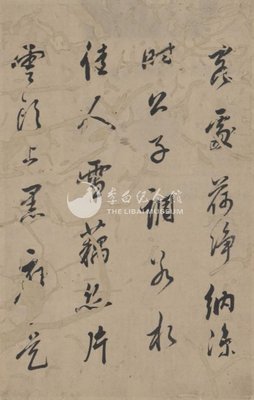 客處荷淨納涼
時公子調冰水
佳人雪藕絲片
雲頭上黑應是
李白纪念馆
THE LIBAI MUSEUM